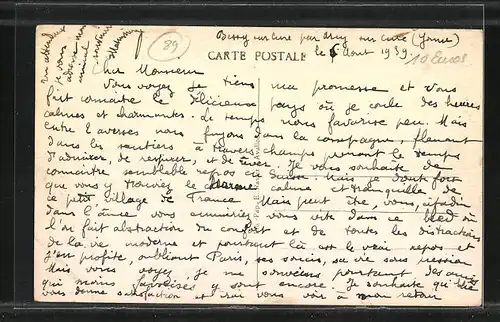 Bessy sur cure par Arcy sur cure (Yonne)
89
CARTE POSTALE
le 6 Aout 1939.
10 Euros
Cher Monsieur
Vous voyez je tiens ma promesse et vous
fait connaitre le délicieux pays où je coule des heures
calmes et charmantes. Le temps nous favorise peu. Mais
entre 2 averses nous fuyons dans la campagne, flanant
dans les sentiers à travers champs prenant le temps
d'admirer, de respirer, et de rêver. Je vous souhaite de
connaitre semblable repos ou Mais je doute fort
que vous y trouviez le charme calme et tranquille de
ce petit village de France. Mais peut être, vous, citadin
dans l'âme vous ennuiriez vous vite dans ce bled où
l'on fait abstraction du confort et de toutes les distractions
de la vie moderne et pourtant là est le vrai repos et
j'en profite, oubliant Paris, ses soucis, sa vie sous pression
Mais vous voyez je me souviens pourtant des amis
qui moins favorisés y sont encore. Je souhaite que
vous donne satisfaction et irai vous voir à mon retour
en attendant